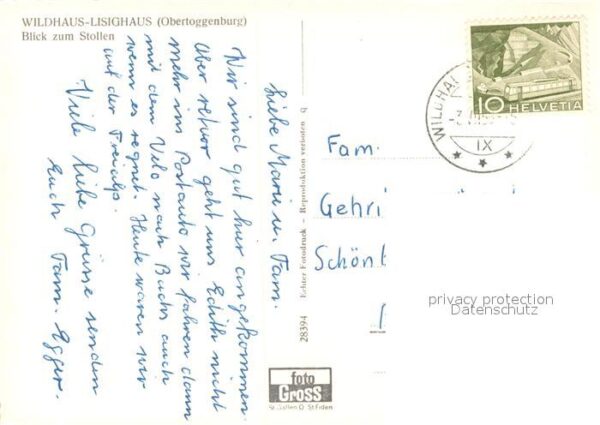 WILDHAUS-LISIGHAUS (Obertoggenburg)
Blick zum Stollen
Liebe Marie u. Fam.
Wir sind gut hier angekommen.
Aber retour geht uns Edith nicht
mehr im Postauto wir fahren dann
mit dem Velo nach Buchs auch
wenn es regnet. Heute waren wir
auf der Freialp.
Viele liebe Grüsse senden
Euch Fam. Egger.
28394 Echter Fotodruck - Reproduktion verboten b
foto
Gross
St. Gallen O St Fiden
10 HELVETIA
WILDHA
IX
Fam.
Gehri
Schönt
privacy protection
Datenschutz